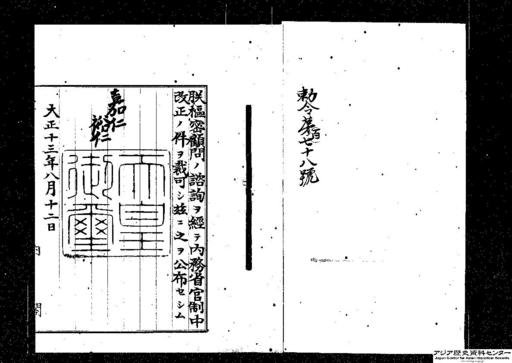 勅令第百七十八號
朕樞密顧問ノ諮詢ヲ經テ內務省官制中
改正ノ件ヲ裁可シ玆ニ之ヲ公布セシム
嘉仁
裕仁
天皇
御璽
大正十三年八月十二日
內
閣
アジア歴史資料センター
Japan Center for Asian Historical Records